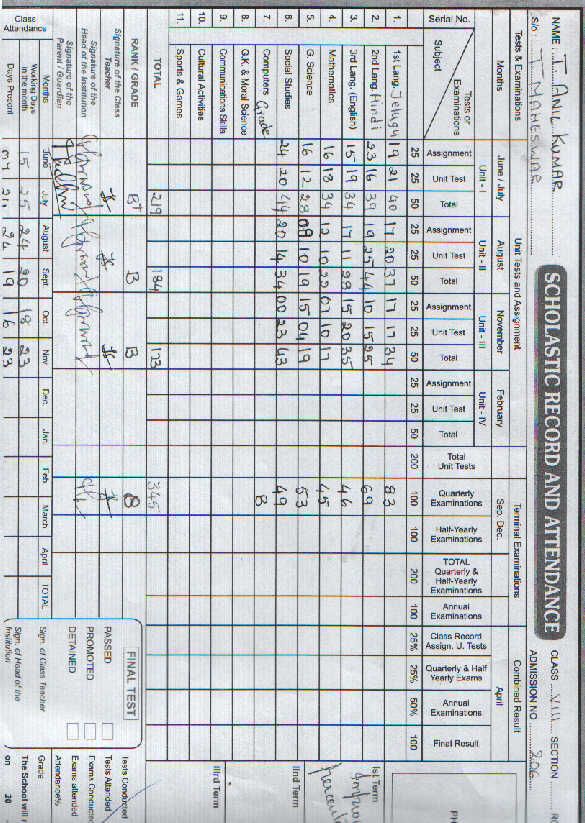 SCHOLASTIC RECORD AND ATTENDANCE
NAME T. ANIL KUMAR CLASS VIII SECTION
S/o: T. MAHESWAR ADMISSION NO. 206
Tests & Examinations Unit Tests and Assignment Terminal Examinations Combined Result
Months June / July August November February Sep. Dec. April
Unit - I Unit - II Unit - III Unit - IV
Serial No. Subject Tests or Examinations Assignment Unit Test Total Assignment Unit Test Total Assignment Unit Test Total Assignment Unit Test Total Total Unit Tests Quarterly Examinations Half-Yearly Examinations TOTAL Quarterly & Half-Yearly Examinations Annual Examinations Class Record Assign. U. Tests Quarterly & Half Yearly Exams Annual Examinations Final Result
25 25 50 25 25 50 25 25 50 25 25 50 200 100 100 200 100 25% 25% 50% 100
1. 1st Lang. Telugu 19 21 40 17 20 37 17 17 34 83
2. 2nd Lang. Hindi 23 16 39 19 25 44 10 15 25 69
3. 3rd Lang. (English) 15 19 34 17 11 28 15 20 35 46
4. Mathematics 16 18 34 12 10 22 07 10 17 45
5. G. Science 16 12 28 09 10 19 15 04 19 53
6. Social Studies 24 20 44 20 14 34 20 23 43 49
7. Computers Grade B
8. G.K. & Moral Science
9. Communications Skills
10. Cultural Activities
11. Sports & Games
TOTAL 219 184 173 345
RANK / GRADE B+ B B B
Signature of the Class Teacher
Signature of the Head of the Institution
Signature of the Parent / Guardian
Class Attendance
Months June July August Sept. Oct. Nov. Dec. Jan. Feb. March April TOTAL
Working Days in the month 15 25 24 20 18 23
Days Present 24 19 16 23
Ist Term
IInd Term
IIIrd Term
FINAL TEST
PASSED
PROMOTED
DETAINED
Sign. of Class Teacher
Sign. of Head of the Institution
Tests Conducted
Tests Attended
Exams Conducted
Exams attended
Attendance%
Grade
The School will
on 20